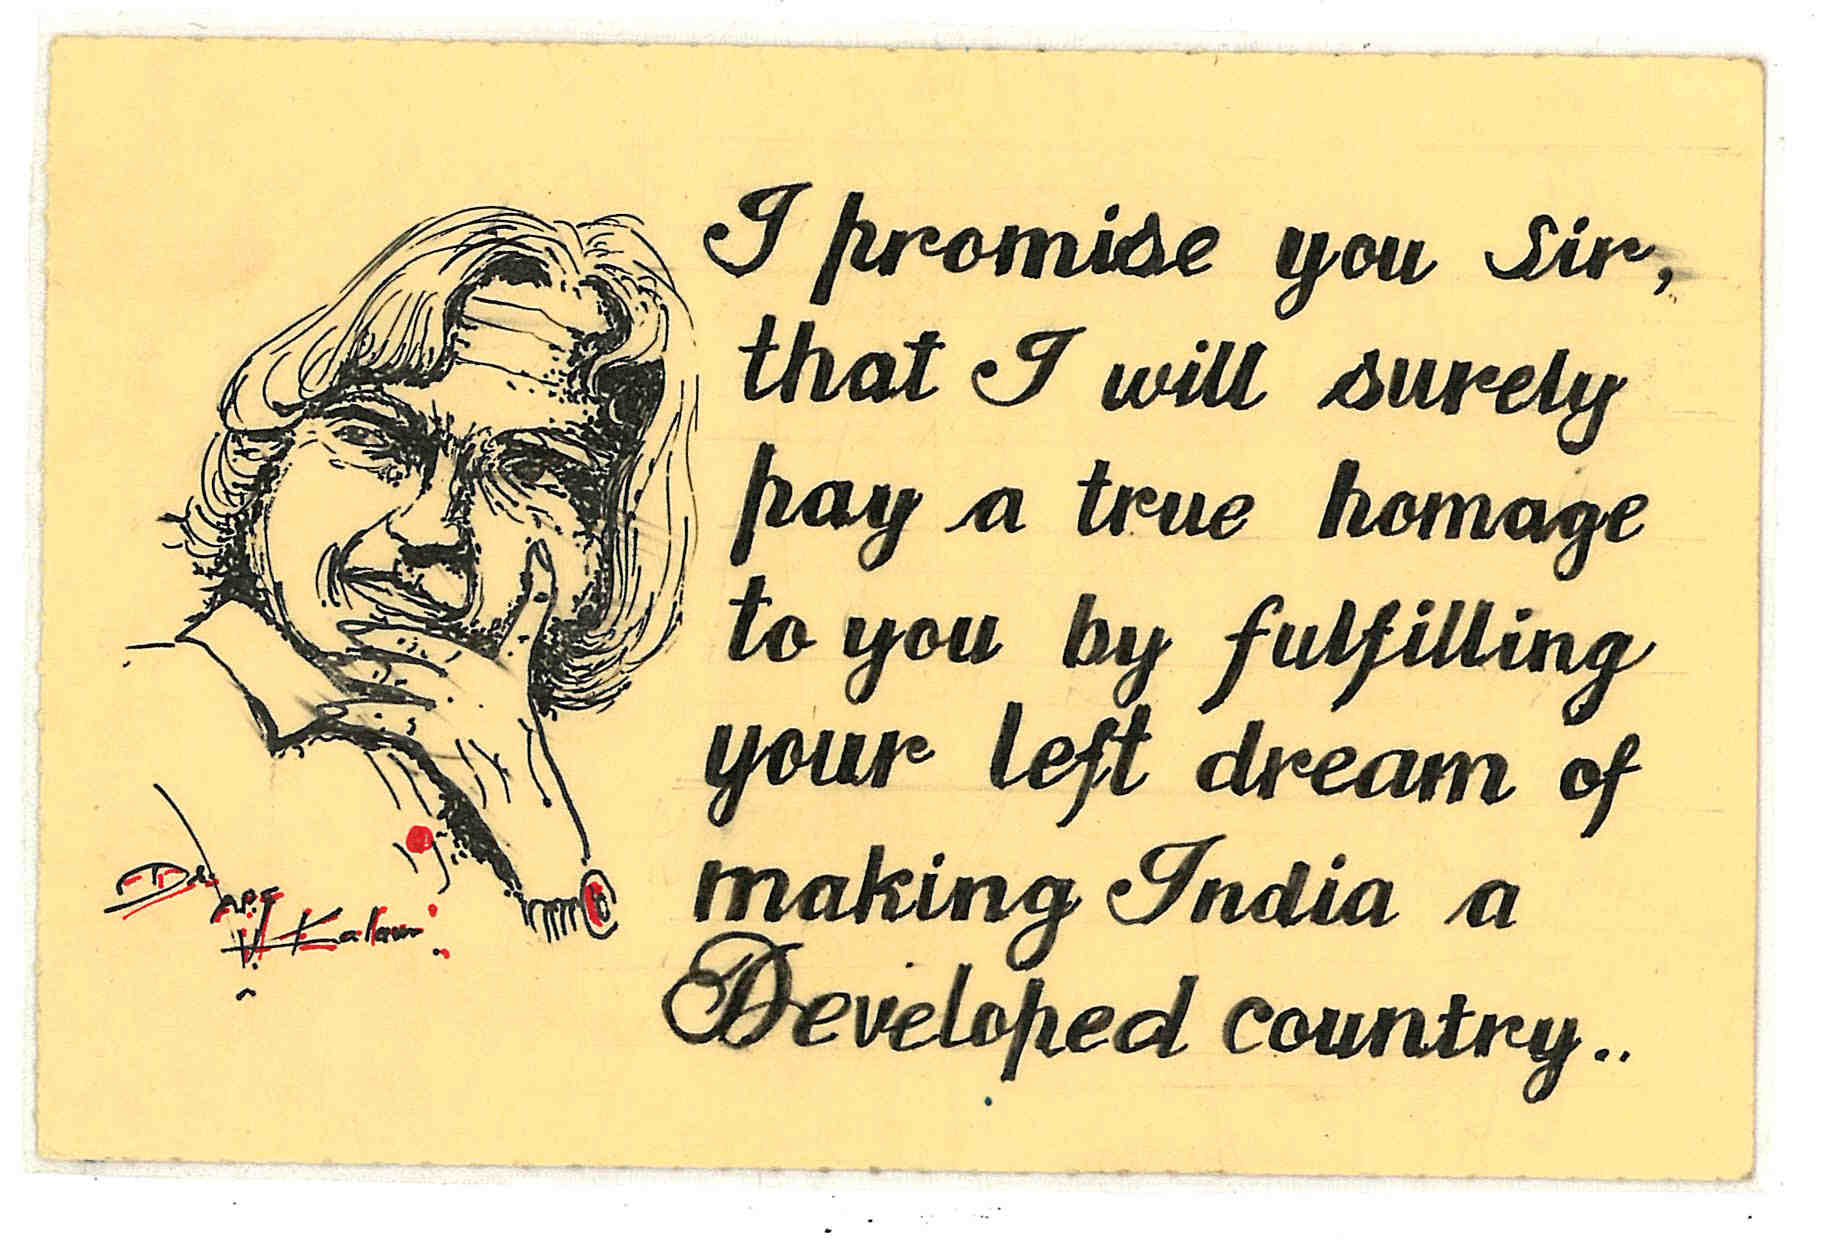 I promise you Sir,
that I will surely
pay a true homage
to you by fulfilling
your left dream of
making India a
Developed country..
Dr.
A.P.J
Kalam